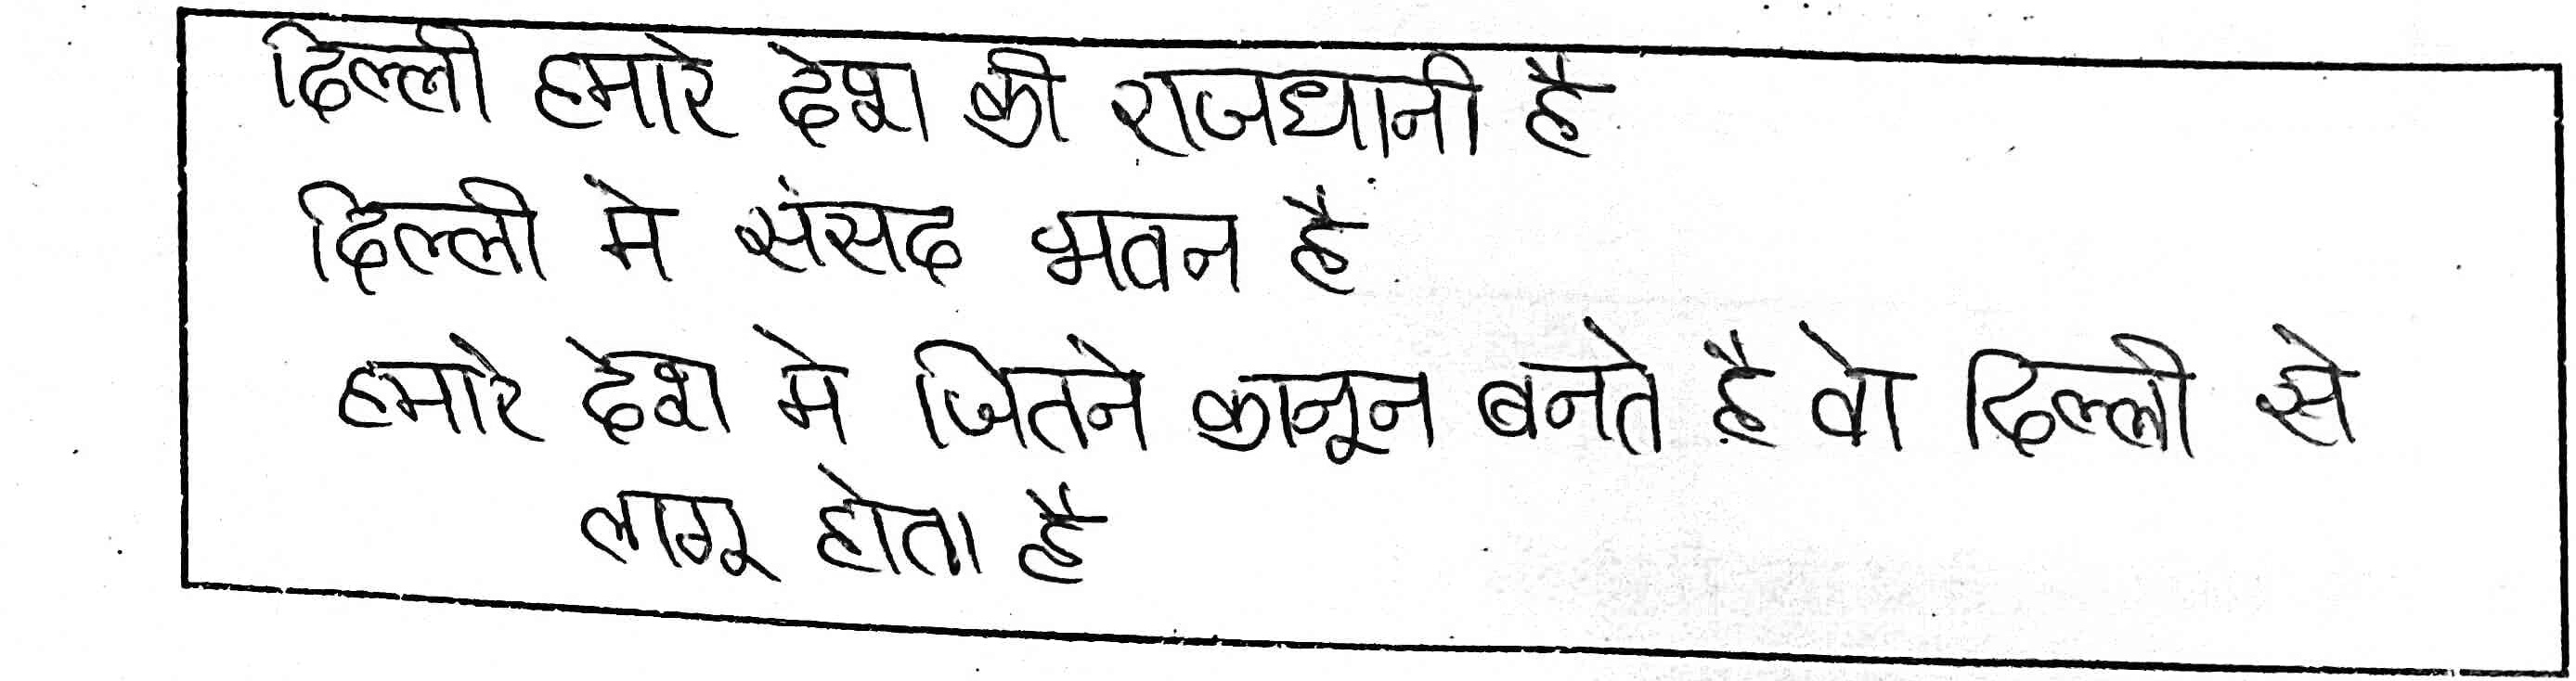 दिल्ली हमारे देश की राजधानी है
दिल्ली मे संसद भवन है
हमारे देश मे जितने कानून बनते है वो दिल्ली से
लागू होता है